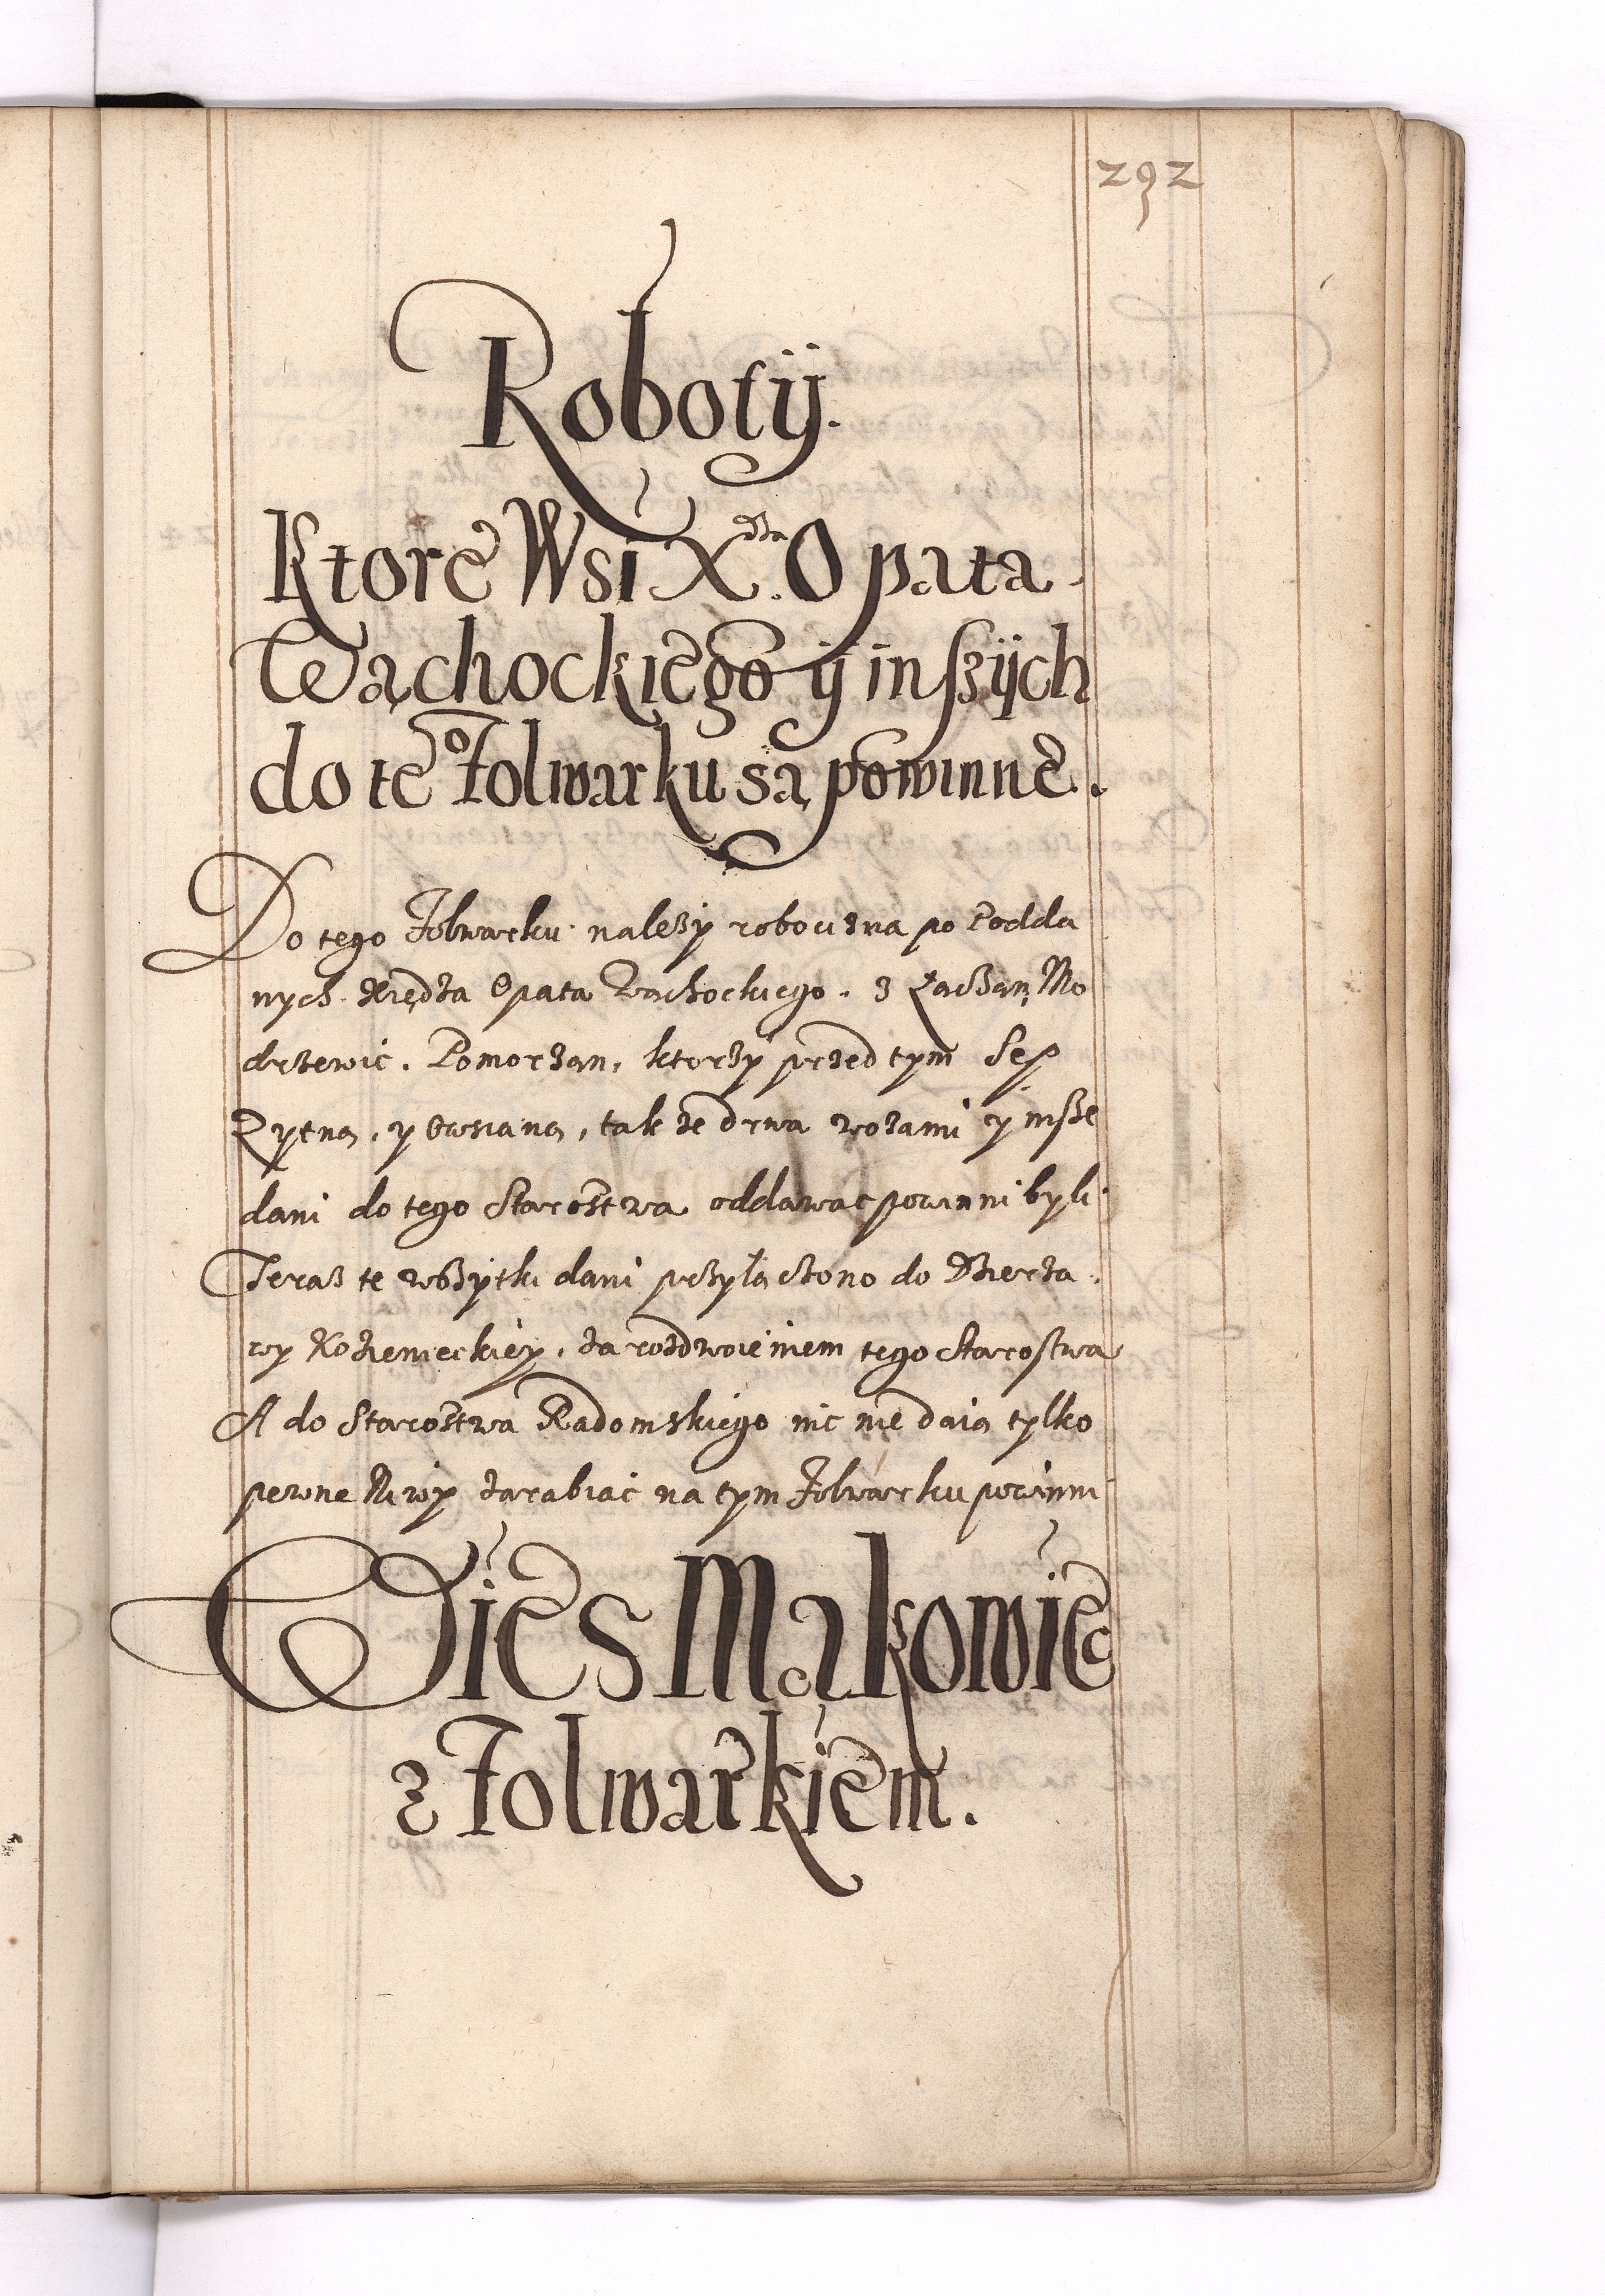 292
Robotÿ.
Ktore Wsi X.dza Opata
Wąchockiego ÿ inszÿch
do te⁰ Folwarku są powinne.
Do tego Folwarku należy robocizna po Podda
nych Xiędza Opata Wachockiego. z Modrzewic
drzewic. Pomorzan, ktorzy przed tym Sep
Zytną, y Owsianą, tak że drwa wozami y insze
dani do tego Starostwa oddawac powinni byli
Teraz te wszytki dani przyłączono do Dzierza
wy Kozienieckiey, za rozdwoieniem tego Starostwa
A do Starostwa Radomskiego nic nie daią tylko
pewne Niwy zarabiac na tym Folwarku powinni
Wies Mąkowiec
z Folwarkiem.